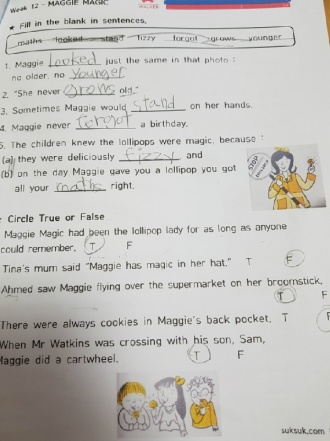 Weak 12 - MAGGIE MAGIC
WALKER
★ Fill in the blank in sentences.
maths looked stand fizzy forgot grows younger
1. Maggie looked just the same in that photo :
no older, no younger
2. "She never grows old."
3. Sometimes Maggie would stand on her hands.
4. Maggie never forgot a birthday.
5. The children knew the lollipops were magic, because :
(a) they were deliciously fizzy and
(b) on the day Maggie gave you a lollipop you got
all your maths right.
STOP
Circle True or False
Maggie Magic had been the lollipop lady for as long as anyone
could remember. T F
Tina's mum said "Maggie has magic in her hat." T F
Ahmed saw Maggie flying over the supermarket on her broomstick.
T F
There were always cookies in Maggie's back pocket. T F
When Mr Watkins was crossing with his son, Sam,
Maggie did a cartwheel. T F
suksuk.com